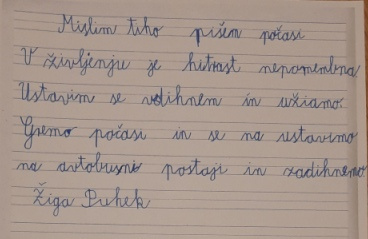 Mislim tiho pišem počasi
V življenju je hitrost nepomembna
Ustavim se vdihnem in uživamo
Gremo počasi in se na ustavimo
na avtobusni postaji in zadihnemo
Žiga Puhek